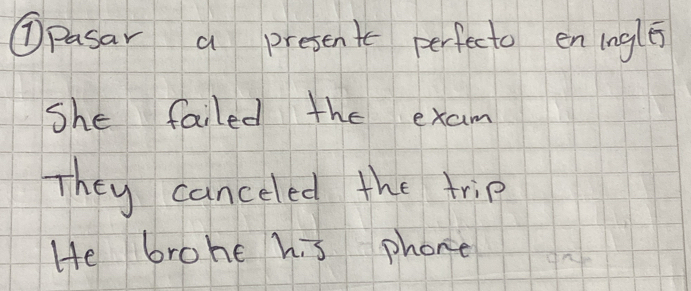 ① Pasar a presente perfecto en inglés
She failed the exam
They canceled the trip
He broke his phone